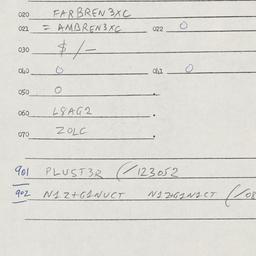 020 FARBREN3XC
021 = AMBREN3XC 022 0
030 $/-
040 0 041 0
050 0 .
060 L8AG2 .
070 ZOLC .
901 PLUST3R (/123052
902 N1Z+G1NUCT